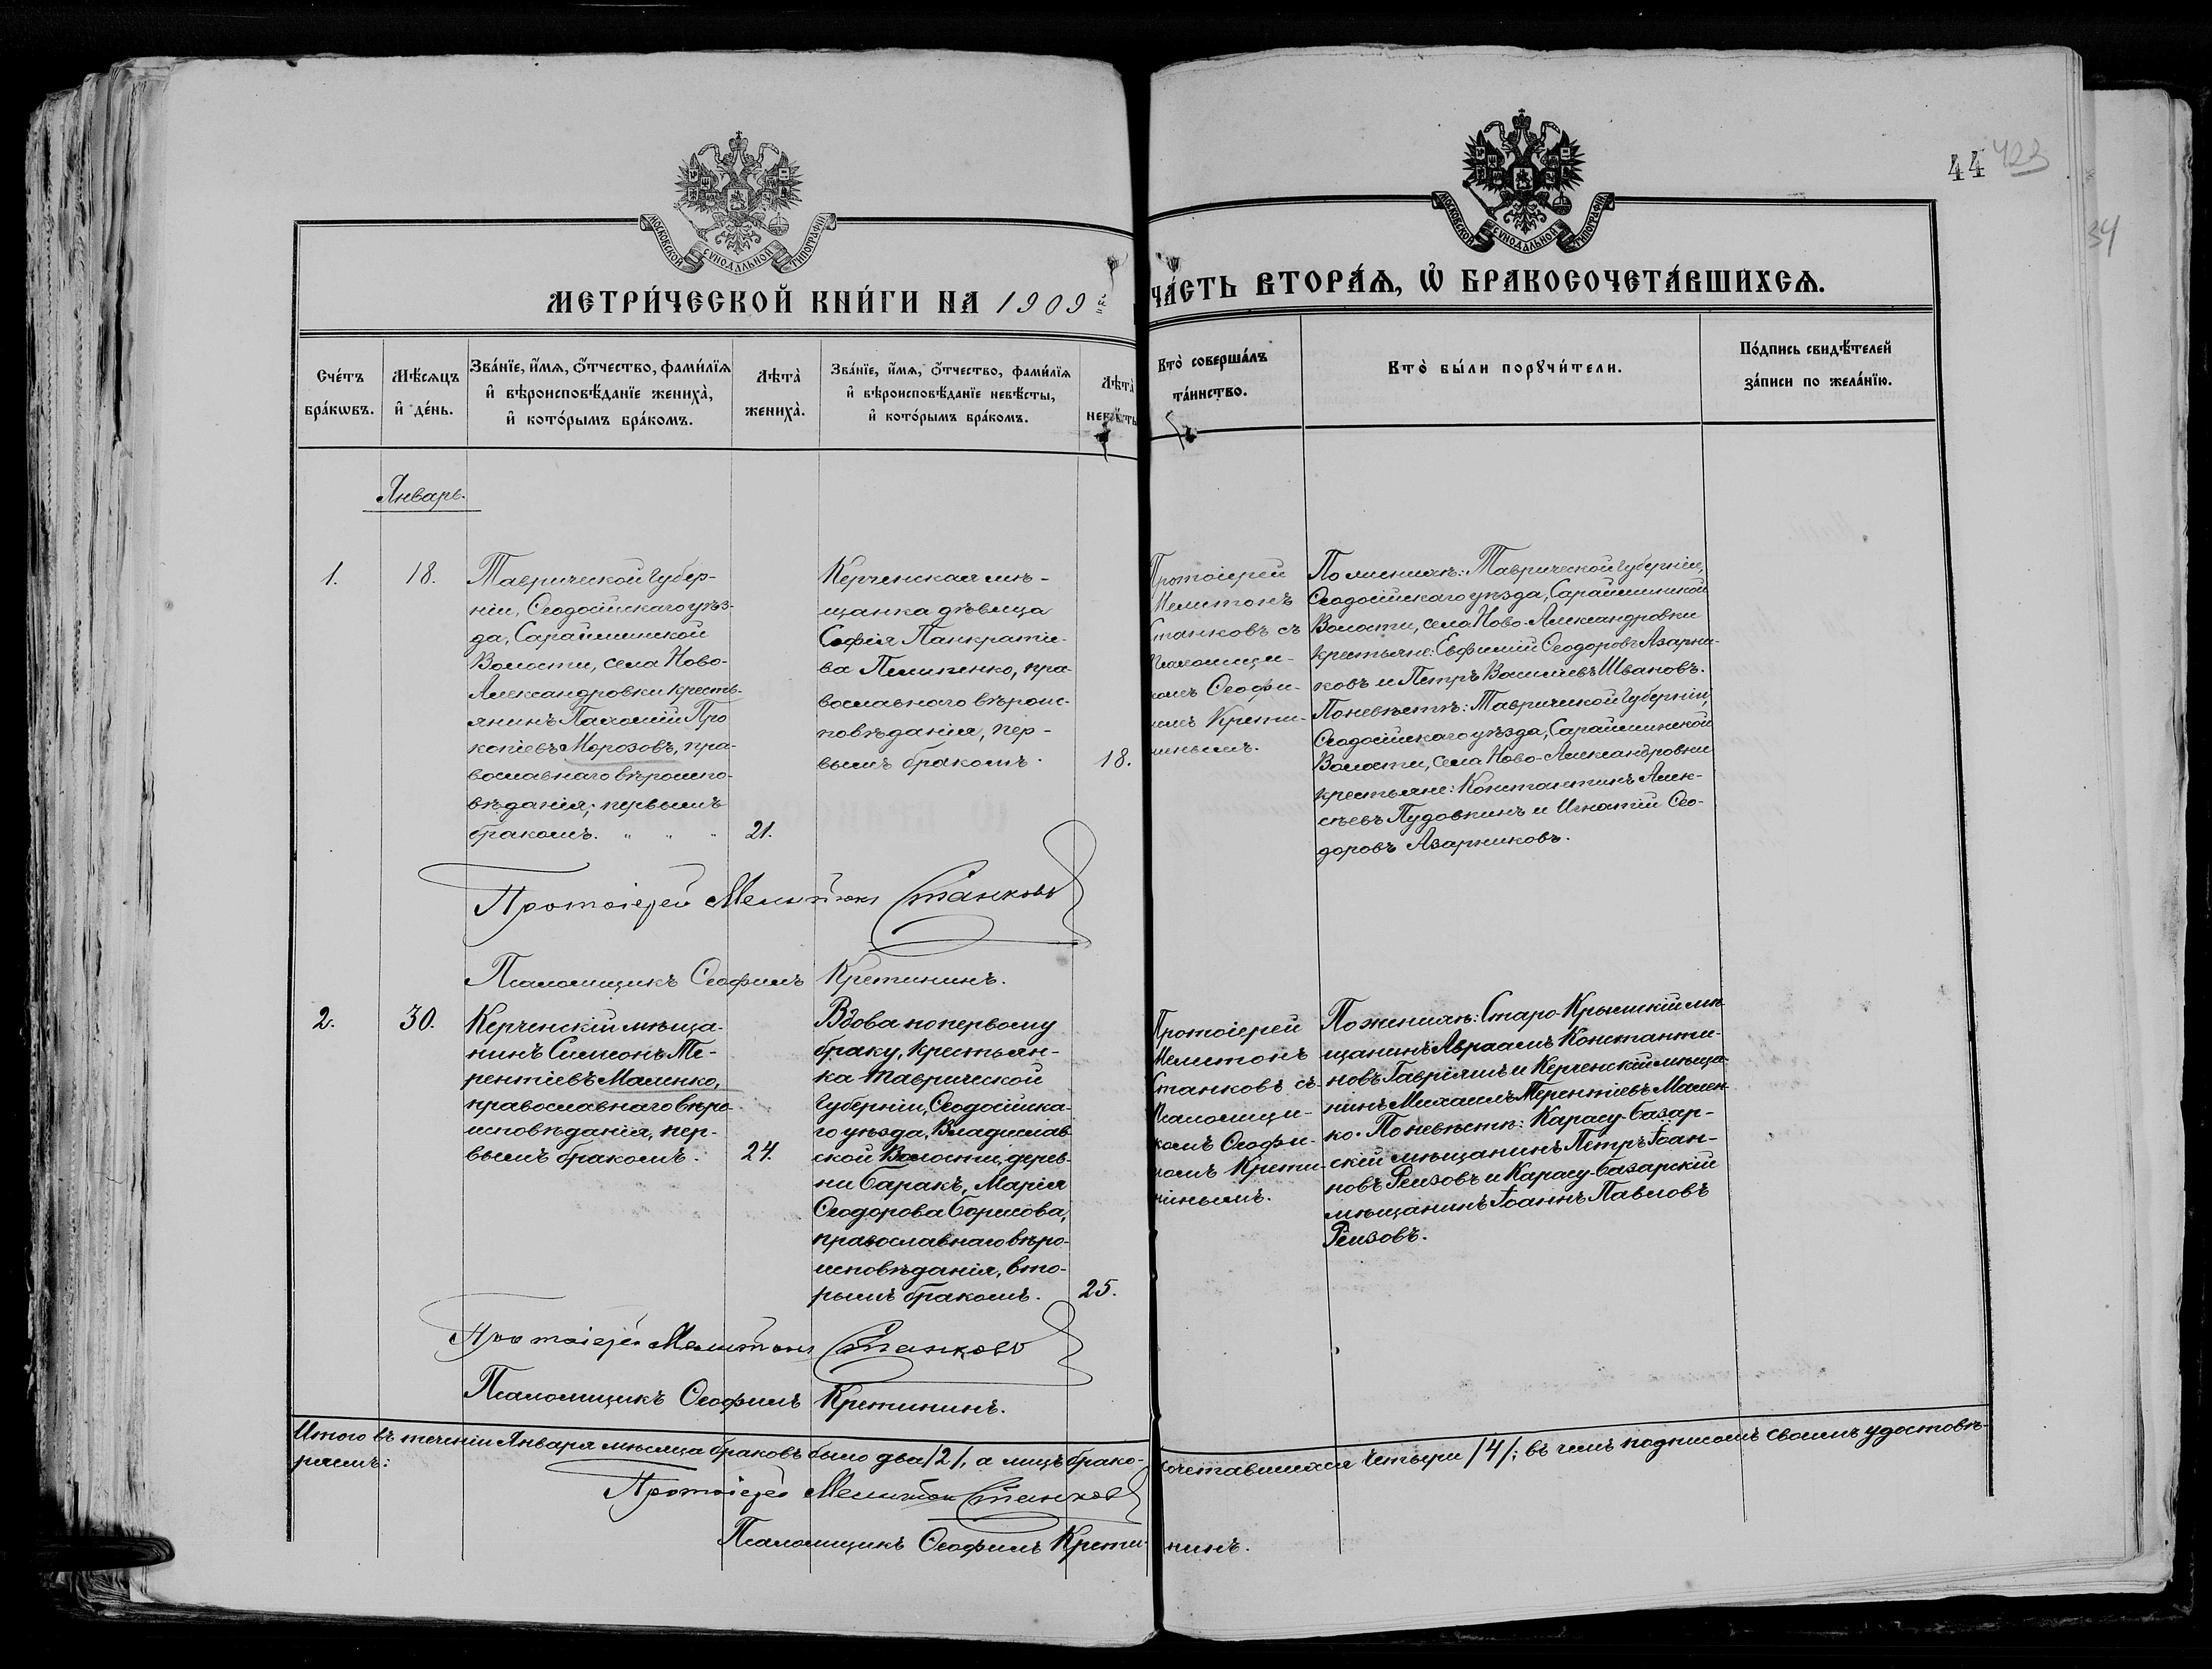 44 423
34
МОСКОВСКОЙ СУНОДАЛЬНОЙ ТИПОГРАФІИ
МОСКОВСКОЙ СУНОДАЛЬНОЙ ТИПОГРАФІИ
МЕТРИ́ЧЕСКОЙ КНИ́ГИ НА 1909й
ЧА́СТЬ ВТОРА́Ѧ, Ѽ БРАКОСОЧЕТА́ВШИХСѦ.
Сче́тъ бра́кѡвъ.
Мѣ́сѧцъ и҆ де́нь.
Зва́нїе, и҆́мѧ, ѻ҆́тчество, фами́лїѧ
и҆ вѣроисповѣ́данїе жениха̀,
и҆ кото́рымъ бра́комъ.
Лѣта̀ жениха̀.
Зва́нїе, и҆́мѧ, ѻ҆́тчество, фами́лїѧ
и҆ вѣроисповѣ́данїе невѣ́сты,
и҆ кото́рымъ бра́комъ.
Лѣта̀ невѣ́сты
Кто̀ соверша́лъ
та́инство.
Кто̀ бы́ли порꙋчи́тели.
По́дпись свидѣ́телей
за́писи по жела́нїю.
Январь.
1.
18.
Таврической Губер-
ніи, Ѳеодосійскаго уѣз-
да, Сарайминской
Волости, села Ново-
Александровки кресть-
янинъ Пахомій Про
копіевъ Морозовъ, пра-
вославнаго вѣроиспо-
вѣданія, первымъ
бракомъ. " " "
21.
Керченская мѣ-
щанка дѣвица
Софія Панкратіе-
ва Пилипенко, пра-
вославнаго вѣроис-
повѣданія, пер-
вымъ бракомъ.
18.
Протоіерей
Мелитонъ
Станковъ съ
Псаломщи-
комъ Ѳеофи-
ломъ Крети-
нинымъ.
По женихѣ: Таврической Губерніи,
Ѳеодосійскаго уѣзда, Сарайминской
Волости, села Ново-Александровки
крестьяне: Евфимій Ѳеодоровъ Азарни-
ковъ и Петръ Василіевъ Ивановъ.
По невѣстѣ: Таврической Губерніи,
Ѳеодосійскаго уѣзда, Сарайминской
Волости, села Ново-Александровки
крестьяне: Константинъ Алек-
сѣевъ Пудовкинъ и Игнатій Ѳео-
доровъ Азарниковъ.
Протоіерей Мелитонъ Станковъ
Псаломщикъ Ѳеофилъ Кретининъ.
2.
30.
Керченскій мѣща-
нинъ Симеонъ Те-
рентіевъ Маленко,
православнаго вѣро-
исповѣданія, пер-
вымъ бракомъ.
24.
Вдова по первому
браку, крестьян-
ка Таврической
Губерніи, Ѳеодосійска-
го уѣзда, Владислав
ской Волости, дерев-
ни Баракъ, Марія
Ѳеодорова Борисова,
православнаго вѣро-
исповѣданія, вто-
рымъ бракомъ.
25.
Протоіерей
Мелитонъ
Станковъ съ
Псаломщи-
комъ Ѳеофи-
ломъ Крети-
нинымъ.
По женихѣ: Старо-Крымскій мѣ-
щанинъ Авраамъ Константи-
новъ Гавріишъ и Керченскій мѣща-
нинъ Михаилъ Терентіевъ Мален-
ко. По невѣстѣ: Карасу-базар-
скій мѣщанинъ Петръ Іоан-
новъ Реизовъ и Карасу-базарскій
мѣщанинъ Іоаннъ Павловъ
Реизовъ.
Протоіерей Мелитонъ Станковъ
Псаломщикъ Ѳеофилъ Кретининъ.
Итого въ теченіи Января мѣсяца браковъ было два /2/, а лицъ брако-сочетавшихся четыре /4/; въ чемъ подписомъ своимъ удостовѣ-
ряемъ:
Протоіерей Мелитонъ Станковъ
Псаломщикъ Ѳеофилъ Кретининъ.